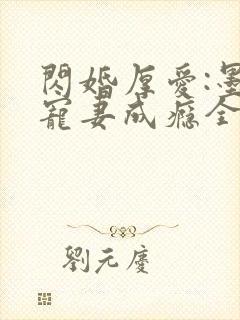 閃婚厚愛:墨
寵妻成癮全
劉元慶